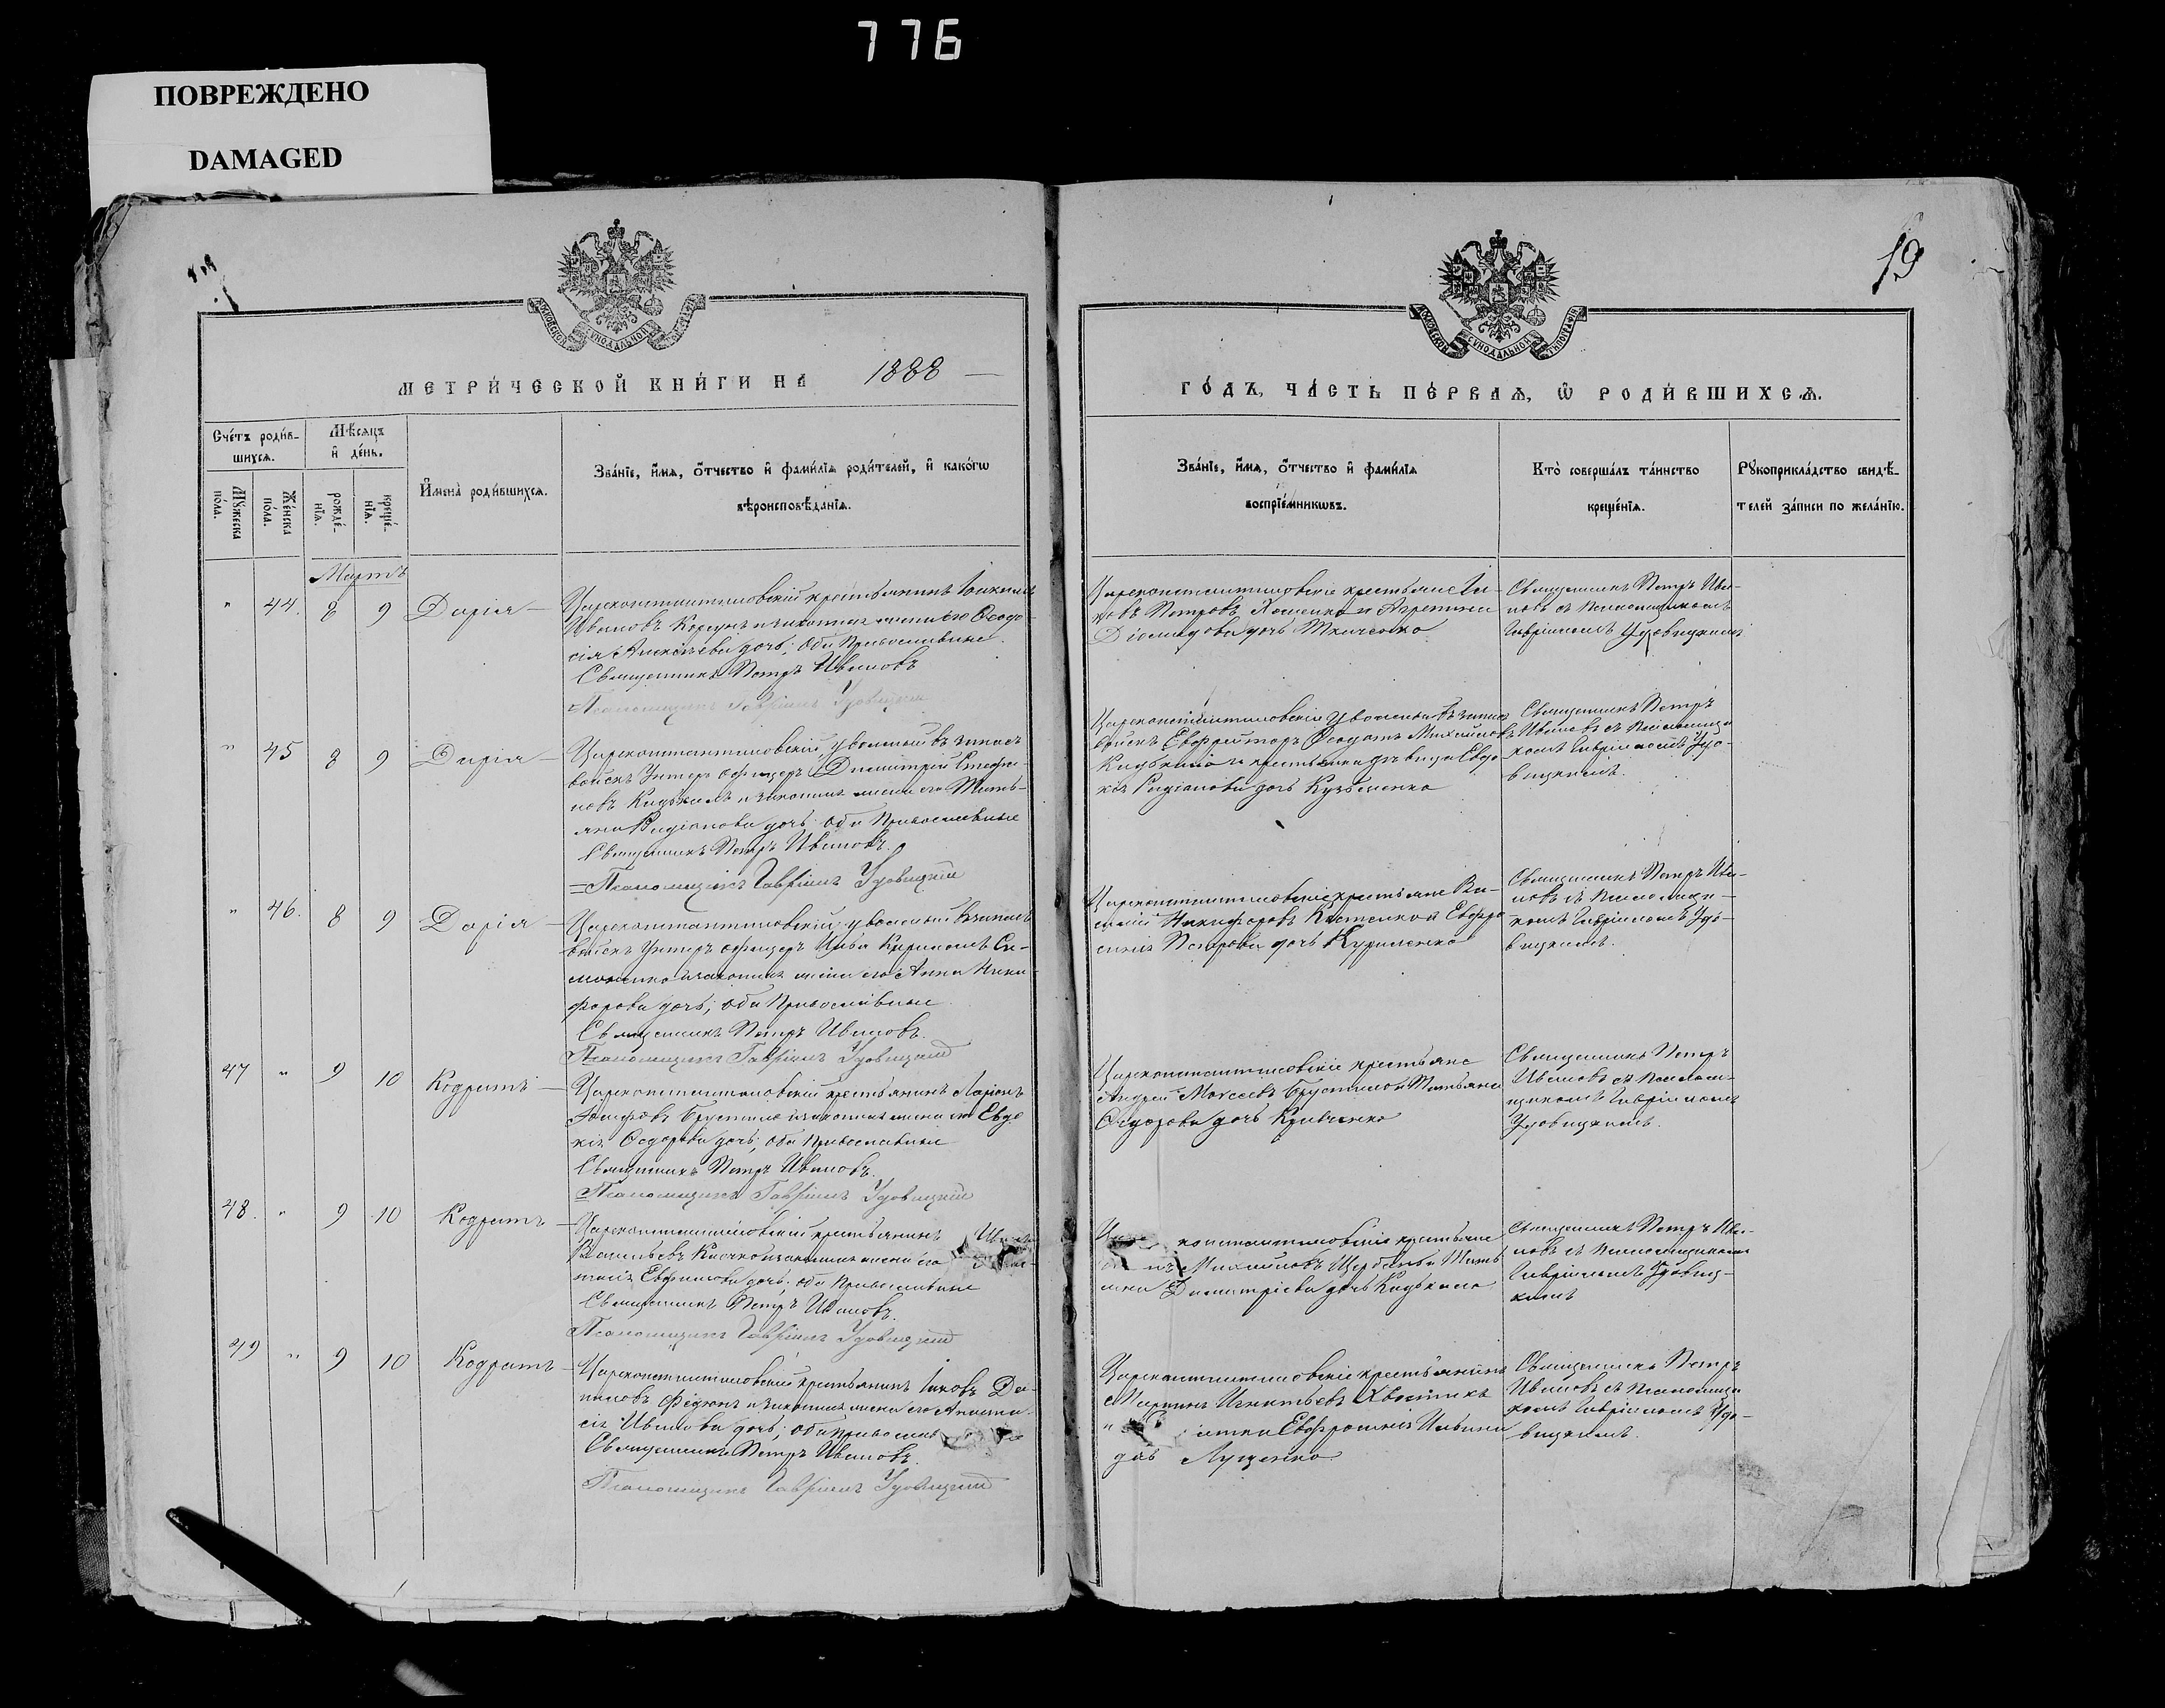 776
ПОВРЕЖДЕНО
DAMAGED
19
МОСКОВСКОЙ СѴНОДАЛЬНОЙ
МОСКОВСКОЙ СѴНОДАЛЬНОЙ ТИПОГРАФІИ
МЕТРИ́ЧЕСКОЙ КНИ́ГИ НА 1888
ГО́ДЪ, ЧА́СТЬ ПЕ́РВАѦ, Ѽ РОДИ́ВШИХСѦ.
Сче́тъ роди́в-
шихсѧ.
Мѣ́сѧцъ
и҆ де́нь.
Мꙋ́жеска
по́ла.
Же́нска
по́ла.
рожде́-
нїѧ.
креще́-
нїѧ.
И҆мена̀ роди́вшихсѧ.
Зва́нїе, и҆́мѧ, ѻ҆́тчество и҆ фами́лїѧ роди́телей, и҆ како́гѡ
вѣроисповѣ́данїѧ.
Зва́нїе, и҆́мѧ, ѻ҆́тчество и҆ фами́лїѧ
воспрїе́мникѡвъ.
Кто̀ соверша́лъ та́инство
креще́нїѧ.
Рꙋкоприкла́дство свидѣ́-
телей за́писи по жела́нїю.
Мартъ
" 44. 8 9 Дарія
Цареконстантиновскій крестьянинъ Іоакимъ
Ивановъ Корсунъ и законная жена его Ѳеодо-
сія Алексѣева дочь; оба Православные.
Священникъ Петръ Ивановъ
Псаломщикъ Гавріилъ Удовицкій
Цареконстантиновскіе крестьяне Іа-
ковъ Петровъ Хоменко и Агрепина
Діомидова дочь Ткаченко
Священникъ Петръ Ива-
новъ съ Псаломщикомъ
Гавріиломъ Удовицкимъ
" 45 8 9 Дарія
Цареконстантиновскій уволеный въ запасъ
войскъ Унтеръ офицеръ Димитрій Стефа-
новъ Кидькало и законная жена его Тать-
яна Радіонова дочь; оба Православные
Священникъ Петръ Ивановъ.
Псаломщикъ Гавріилъ Удовицкій
Цареконстантиновскіе уволеный въ запасъ
войскъ Ефрейторъ Ѳеодотъ Михайловъ
Кидькало и крестьянка дѣвица Евдо-
кія Радіонова дочь Кузьменко
Священникъ Петръ
Ивановъ съ Псаломщи
комъ Гавріиломъ Удо-
вицкимъ.
" 46. 8 9 Дарія
Цареконстантиновскій уволеный въ запасъ
войскъ Унтеръ офицеръ
и законная жена его Анна Ники-
форова дочь; оба Православные
Священникъ Петръ Ивановъ.
Псаломщикъ Гавріилъ Удовицкій
Цареконстантиновскіе крестьяне Ва-
силій Никифоровъ Костенко и Евфро
синія Петрова дочь Куриленко
Священникъ Петръ Ива-
новъ съ Псаломщи-
комъ Гавріиломъ Удо-
вицкимъ.
47 " 9 10 Кодратъ
Цареконстантиновскій крестьянинъ Ларіонъ
Іосифовъ Брустило и законная жена его Евдо
кія Ѳедорова дочь; оба Православные
Священникъ Петръ Ивановъ.
Псаломщикъ Гавріилъ Удовицкій
Цареконстантиновскіе крестьяне
Андрей Моѵсеевъ Брустило и Татьяна
Ѳедорова дочь Кравченко
Священникъ Петръ
Ивановъ съ Псалом-
щикомъ Гавріиломъ
Удовицкимъ.
48. " 9 10 Кодратъ
Цареконстантиновскій крестьянинъ
Васильевъ и законная жена его
тасія Евфимова дочь; оба Православные
Священникъ Петръ Ивановъ.
Псаломщикъ Гавріилъ Удовицкій
константиновскіе крестьяне
Михайловъ Щербань и Тать
яна Димитріева дочь Кидькало
Священникъ Петръ Ива-
новъ съ Псаломщикомъ
Гавріиломъ Удовиц-
кимъ
49 " 9 10 Кодратъ
Цареконстантиновскій крестьянинъ Іаковъ Да-
ниловъ Федюнъ и законная жена его Анаста-
сія Иванова дочь; оба православ
Священникъ Петръ Ивановъ.
Псаломщикъ Гавріилъ Удовицкій
Цареконстантиновскіе крестьянинъ
Мартинъ Игнатьевъ Хвостикъ
Евфросинія
дочь Луценко
Священникъ Петръ
Ивановъ съ Псаломщи
комъ Гавріиломъ Удо-
вицкимъ.